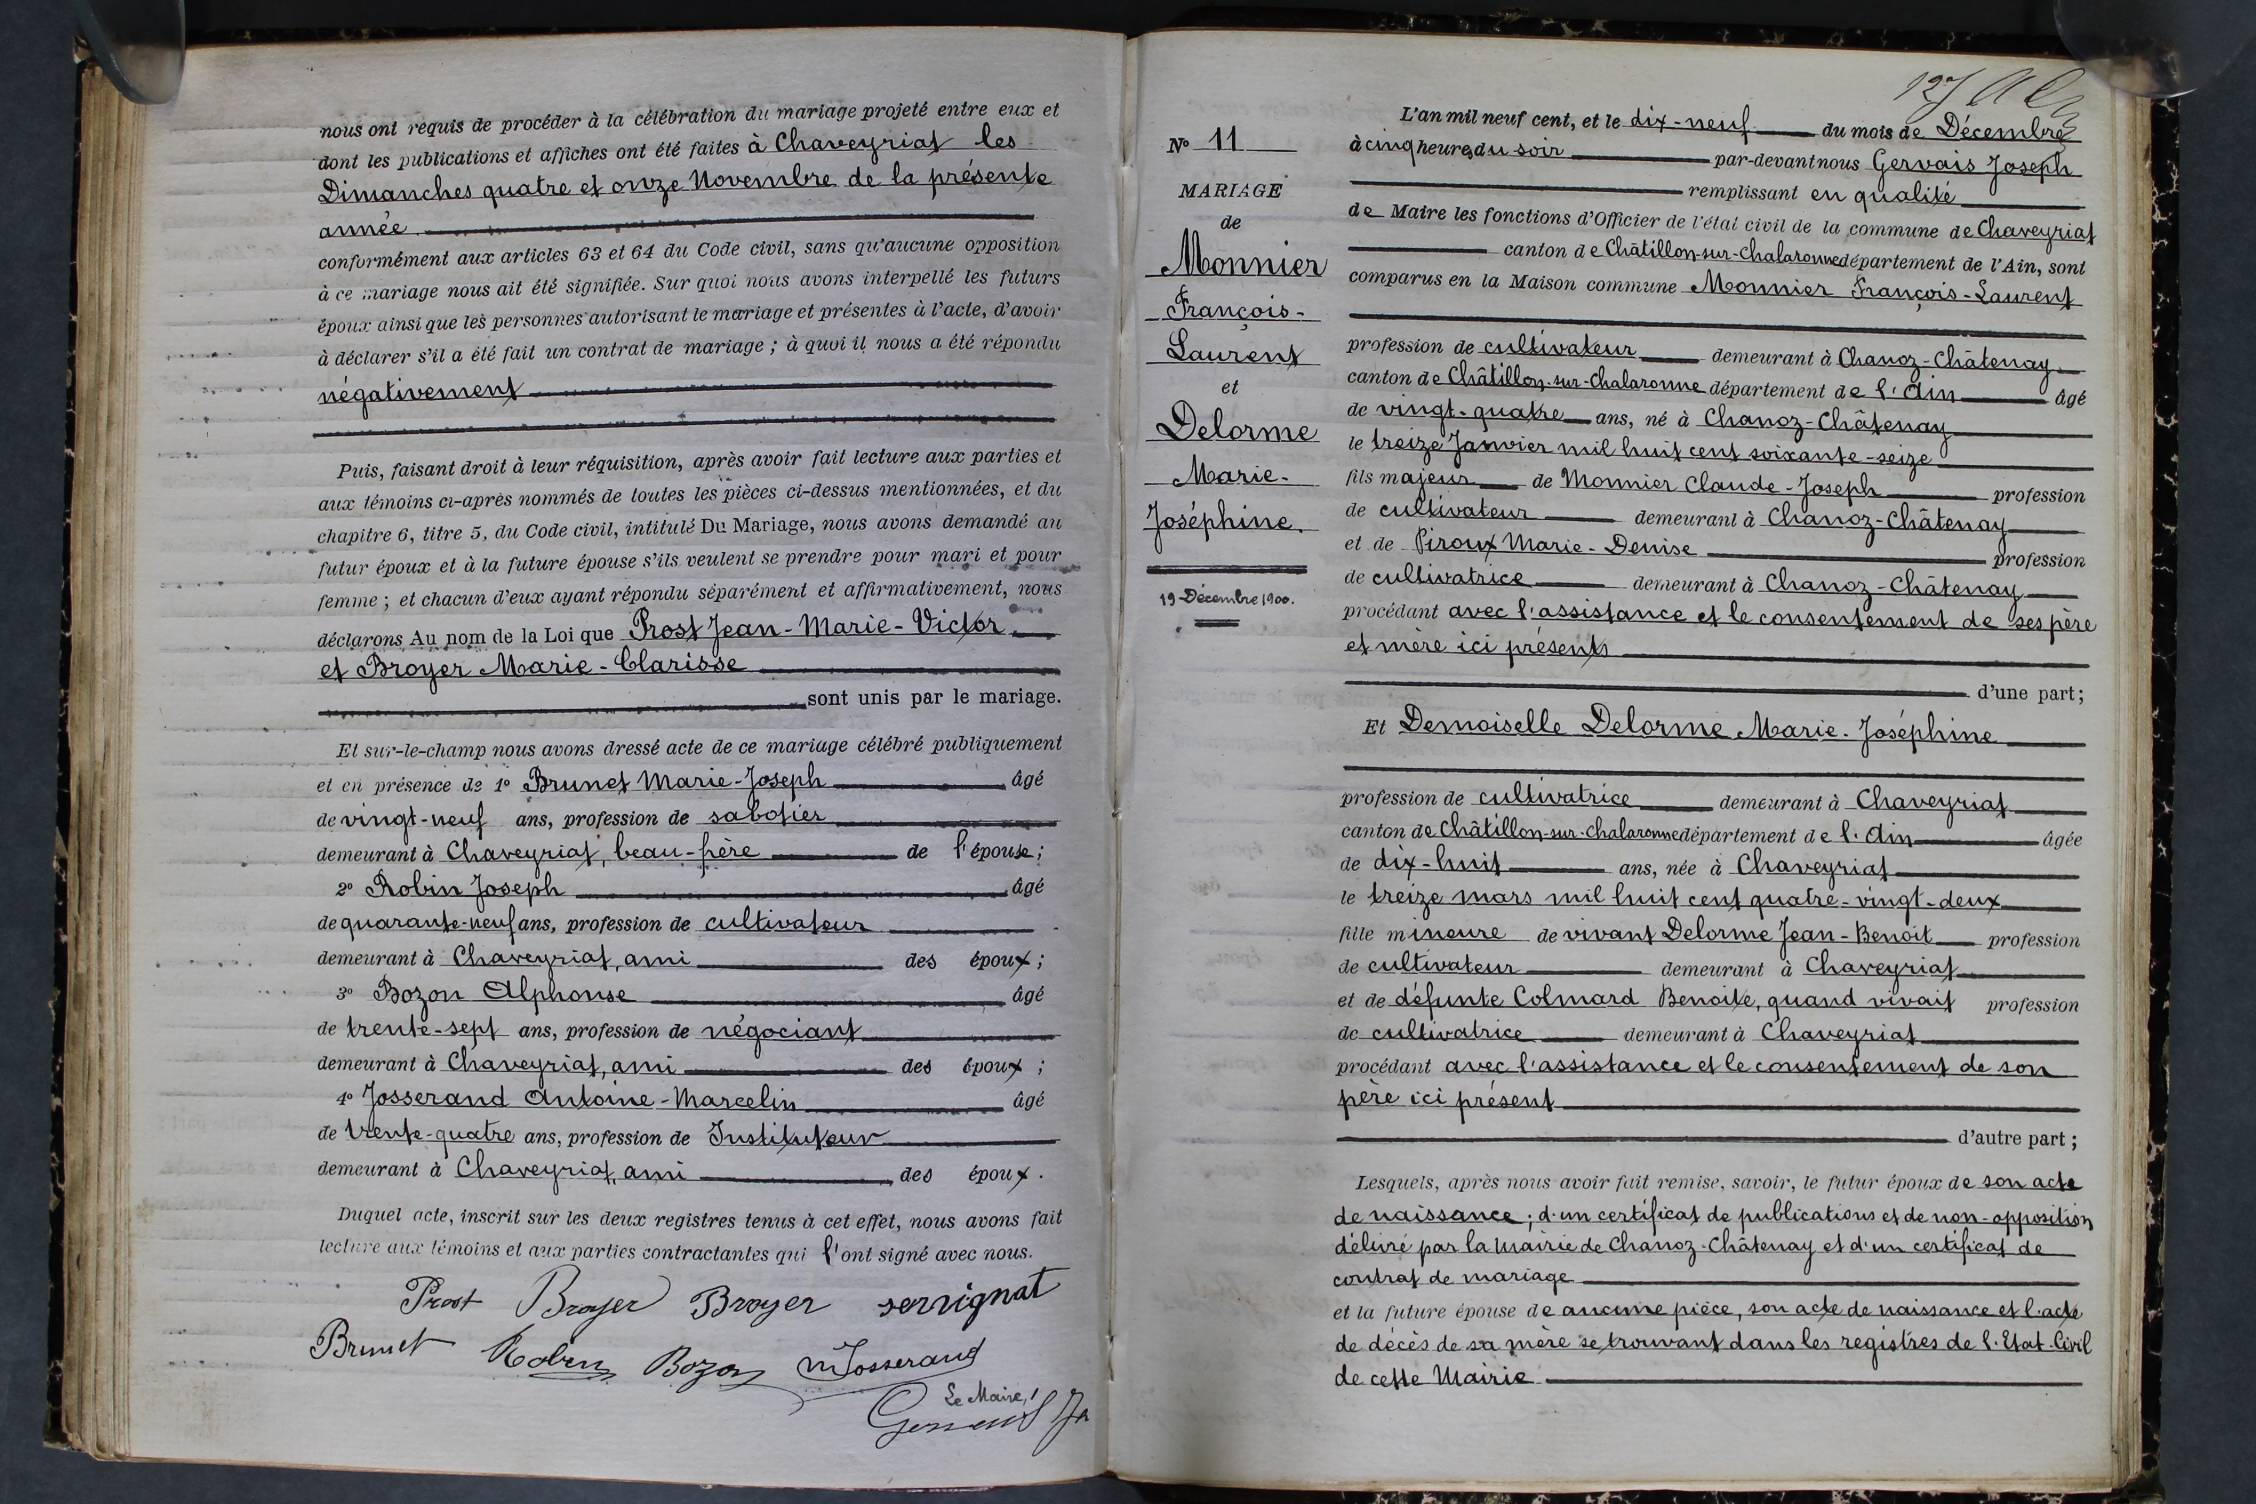 nous ont requis de procéder à la célébration du mariage projeté entre eux et
dont les publications et affiches ont été faites à Chaveyriat les
Dimanches quatre et onze Novembre de la présente
année
conformément aux articles 63 et 64 du Code civil, sans qu'aucune opposition
à ce mariage nous ait été signifiée. Sur quoi nous avons interpellé les futurs
époux ainsi que les personnes autorisant le mariage et présentes à l'acte, d'avoir
à déclarer s'il a été fait un contrat de mariage ; à quoi il nous a été répondu
négativement
Puis, faisant droit à leur réquisition, après avoir fait lecture aux parties et
aux témoins ci-après nommés de toutes les pièces ci-dessus mentionnées, et du
chapitre 6, titre 5, du Code civil, intitulé Du Mariage, nous avons demandé au
futur époux et à la future épouse s'ils veulent se prendre pour mari et pour
femme ; et chacun d'eux ayant répondu séparément et affirmativement, nous
déclarons Au nom de la Loi que Prost Jean-Marie-Victor
et Broyer Marie-Clarisse
sont unis par le mariage.
Et sur-le-champ nous avons dressé acte de ce mariage célébré publiquement
et en présence de 1° Brunet Marie-Joseph âgé
de vingt-neuf ans, profession de sabotier
demeurant à Chaveyriat, beau-frère de l'épouse ;
2° Robin Joseph âgé
de quarante-neuf ans, profession de cultivateur
demeurant à Chaveyriat, ami des époux ;
3° Bozon Alphonse âgé
de trente-sept ans, profession de négociant
demeurant à Chaveyriat, ami des époux ;
4° Josserand Antoine-Marcelin âgé
de trente-quatre ans, profession de Instituteur
demeurant à Chaveyriat, ami des époux.
Duquel acte, inscrit sur les deux registres tenus à cet effet, nous avons fait
lecture aux témoins et aux parties contractantes qui l'ont signé avec nous.
Prost Broyer Broyer serrignat
Brunet Robin Bozon mJosserand
Le Maire,
127
N° 11
MARIAGE
de
Monnier
François-
Laurent
et
Delorme
Marie-
Joséphine.
19 Décembre 1900.
L'an mil neuf cent, et le dix-neuf du mois de Décembre
à cinq heures du soir par-devant nous Gervais Joseph
remplissant en qualité
de Maire les fonctions d'Officier de l'état civil de la commune de Chaveyriat
canton de Châtillon-sur-Chalaronne département de l'Ain, sont
comparus en la Maison commune Monnier François-Laurent
profession de cultivateur demeurant à Chanoz-Châtenay
canton de Châtillon-sur-Chalaronne département de l'Ain âgé
de vingt-quatre ans, né à Chanoz-Châtenay
le treize Janvier mil huit cent soixante-seize
fils majeur de Monnier Claude-Joseph profession
de cultivateur demeurant à Chanoz-Châtenay
et de Piroux Marie-Denise profession
de cultivatrice demeurant à Chanoz-Châtenay
procédant avec l'assistance et le consentement de ses père
et mère ici présents
d'une part ;
Et Demoiselle Delorme Marie-Joséphine
profession de cultivatrice demeurant à Chaveyriat
canton de Châtillon-sur-Chalaronne département de l'Ain âgée
de dix-huit ans, née à Chaveyriat
le treize mars mil huit cent quatre-vingt-deux
fille mineure de vivant Delorme Jean-Benoit profession
de cultivateur demeurant à Chaveyriat
et de défunte Colmard Benoite, quand vivait profession
de cultivatrice demeurant à Chaveyriat
procédant avec l'assistance et le consentement de son
père ici présent
d'autre part ;
Lesquels, après nous avoir fait remise, savoir, le futur époux de son acte
de naissance ; d'un certificat de publications et de non-opposition
délivré par la Mairie de Chanoz-Châtenay et d'un certificat de
contrat de mariage
et la future épouse de aucune pièce, son acte de naissance et l'acte
de décès de sa mère se trouvant dans les registres de l'Etat-Civil
de cette Mairie